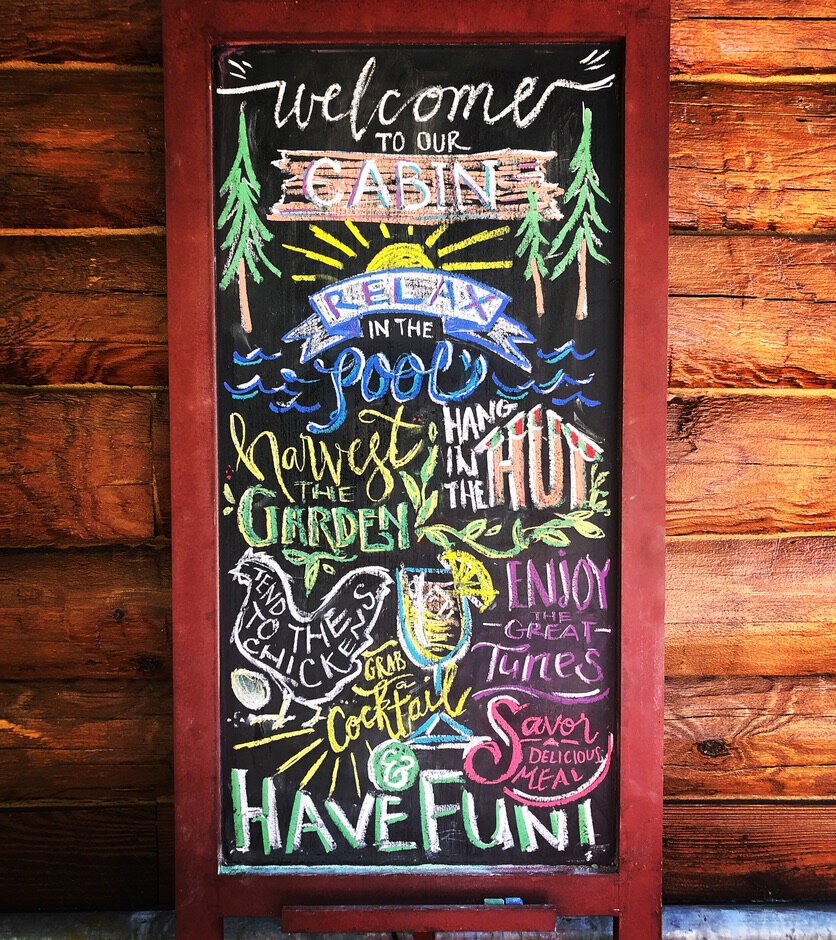 welcome
TO OUR
CABIN
RELAX
IN THE
pool
harvest
THE
GARDEN
HANG
IN
THE
HUT
TEND
TO THE
CHICKENS
GRAB
a
Cocktail
ENJOY
THE
GREAT
Tunes
Savor
A
DELICIOUS
MEAL
&
HAVE FUN!